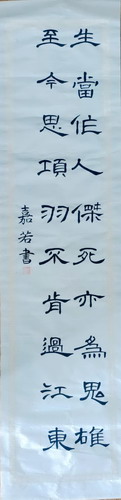 生當作人傑死亦為鬼雄
至今思項羽不肯過江東
嘉若書